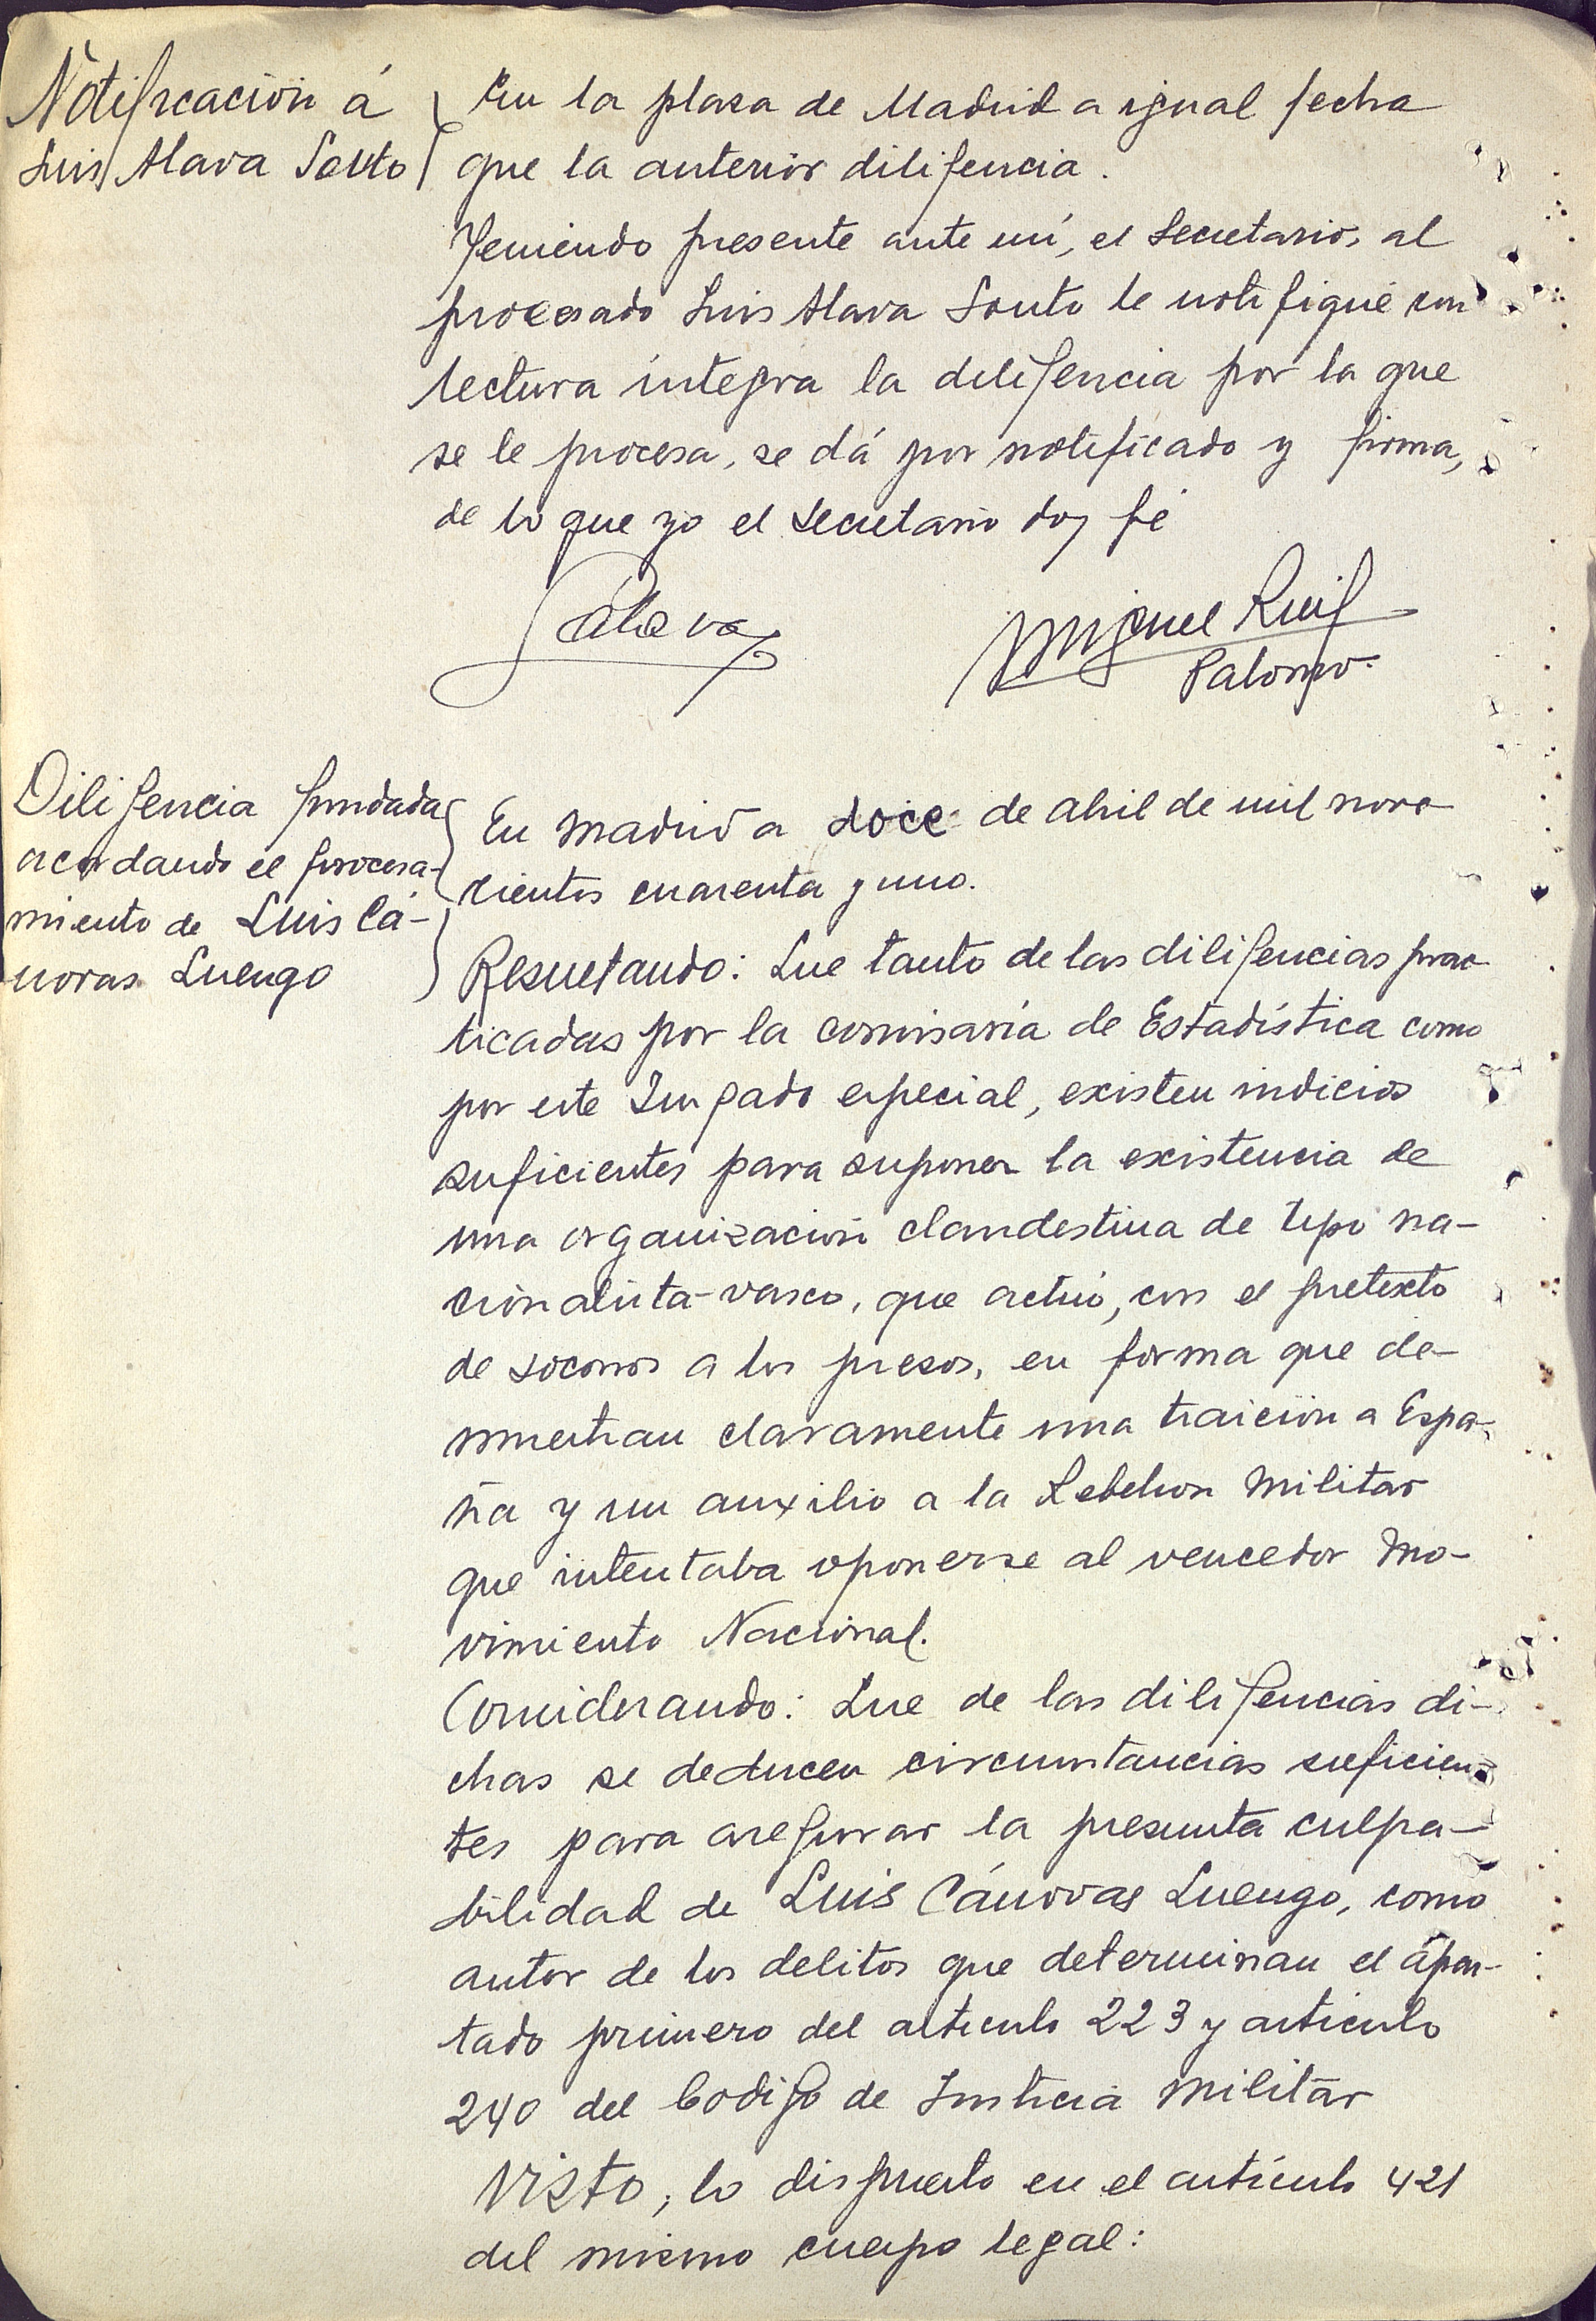 Notificación á
Luis Alava Sauto
En la plaza de Madrid a igual fecha
que la anterior diligencia.
Teniendo presente ante mí, el Secretario, al
procesado Luis Alava Sauto le notifiqué con
lectura integra la diligencia por la que
se le procesa, se dá por notificado y firma,
de lo que yo el secretario doy fé
Álava
Miguel Ruiz
Palomo
Diligencia fundada
acordando el procesa-
miento de Luis Cá-
novas Luengo
En Madrid a doce de abril de mil nove
cientos cuarenta y uno.
Resultando: Que tanto de las diligencias prac
ticadas por la comisaría de Estadística como
por este Juzgado especial, existen indicios
suficientes para suponer la existencia de
una organización clandestina de tipo na-
cionalista-vasco, que actúo, con el pretexto
de socorros a los presos, en forma que de-
muestran claramente una traición a Espa-
ña y un auxilio a la Rebelion Militar
que intentaba oponerse al vencedor Mo-
vimiento Nacional.
Considerando: Que de las diligencias di-
chas se deducen circunstancias suficien-
tes para asegurar la presunta culpa-
bilidad de Luis Cánovas Luengo, como
autor de los delitos que determinan el apar-
tado primero del articulo 223 y articulo
240 del Codigo de Justicia Militar
Visto, lo dispuesto en el artículo 421
del mismo cuerpo legal: